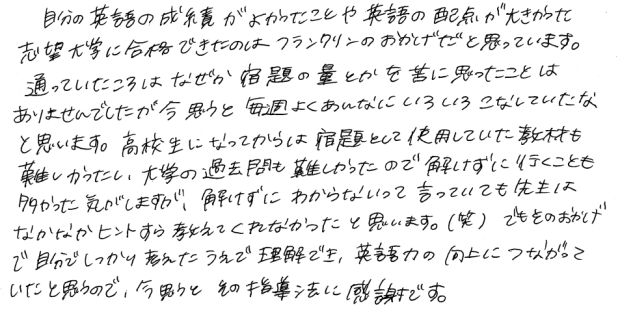 自分の英語の成績がよかったことや英語の配点が大きかった
志望大学に合格できたのはフランクリンのおかげだと思っています。
通っていたころはなぜか宿題の量とかを苦に思ったことは
ありませんでしたが今思うと毎週よくあんなにいろいろこなしていたな
と思います。高校生になってからは宿題として使用していた教材も
難しかったし、大学の過去問も難しかったので解けずに行くことも
多かった気がしますが、解けずにわからないって言っていても先生は
なかなかヒントすら教えてくれなかったと思います。(笑) でもそのおかげ
で自分でしっかり考えたうえで理解でき、英語力の向上につながって
いたと思うので、今思うとその指導法に感謝です。